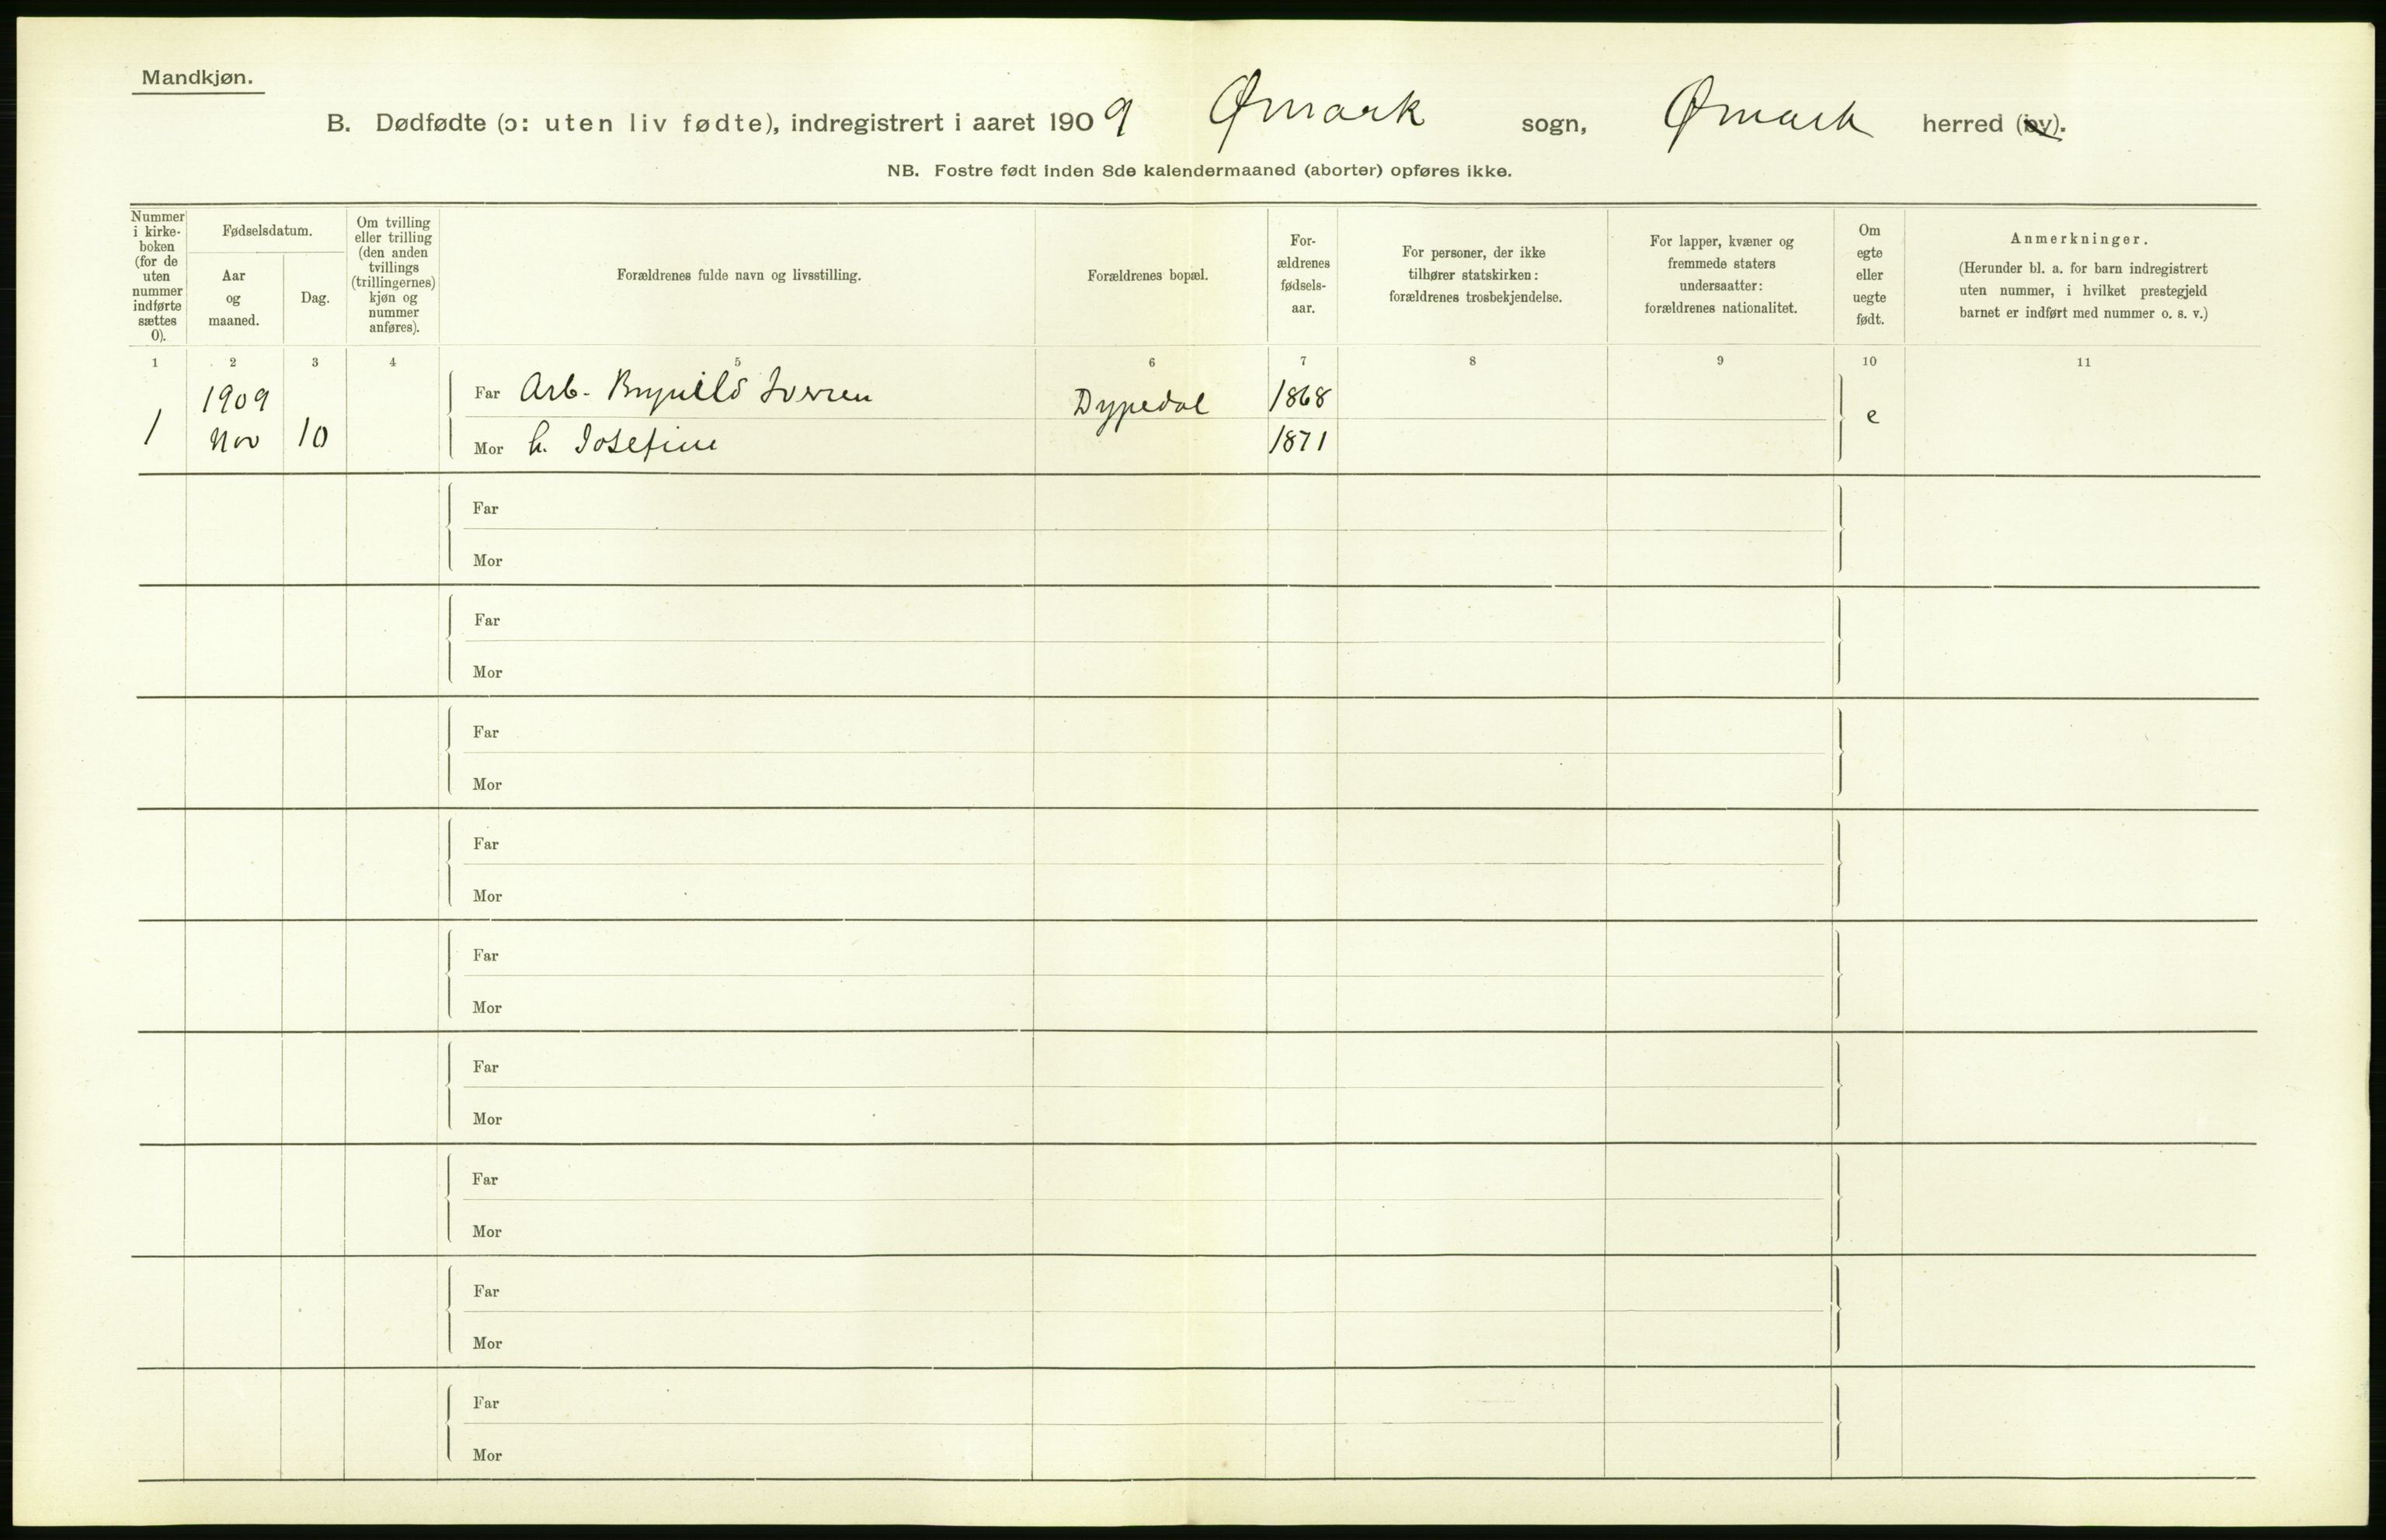 Mandkjøn.
B. Dødfødte (ɔ: uten liv fødte), indregistrert i aaret 1909 Ømark sogn, Ømark herred (by).
NB. Fostre født inden 8de kalendermaaned (aborter) opføres ikke.
Nummer
i kirke-
boken
(for de
uten
nummer
indførte
sættes
0).
Fødselsdatum.
Aar
og
maaned.
Dag.
Om tvilling
eller trilling
(den anden
tvillings
(trillingernes)
kjøn og
nummer
anføres).
Forældrenes fulde navn og livsstilling.
Forældrenes bopæl.
For-
ældrenes
fødsels-
aar.
For personer, der ikke
tilhører statskirken:
forældrenes trosbekjendelse.
For lapper, kvæner og
fremmede staters
undersaatter:
forældrenes nationalitet.
Om
egte
eller
uegte
født.
Anmerkninger.
(Herunder bl. a. for barn indregistrert
uten nummer, i hvilket prestegjeld
barnet er indført med nummer o. s. v.)
1 2 3 4 5 6 7 8 9 10 11
1909 Far Arb. Brynild Iversen Dypedal 1868 e
1 Nov 10 Mor h. Josefine 1871
Far
Mor
Far
Mor
Far
Mor
Far
Mor
Far
Mor
Far
Mor
Far
Mor
Far
Mor
Far
Mor